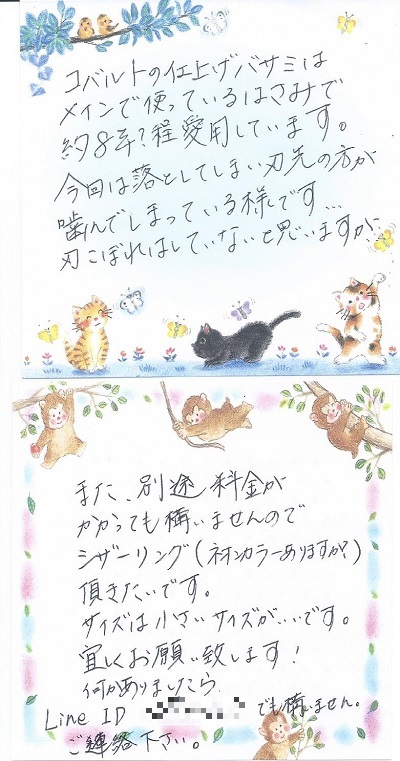 コバルトの仕上げバサミは
メインで使っているはさみで
約8年?程愛用しています。
今回は落としてしまい刃先の方が
噛んでしまっている様です…
刃こぼれはしていないと思いますが
また、別途料金が
かかっても構いませんので
シザーリング(ネオンカラーありますか?)
頂きたいです。
サイズは小さいサイズがいいです。
宜しくお願い致します!
何かありましたら
Line ID でも構いません。
ご連絡下さい。